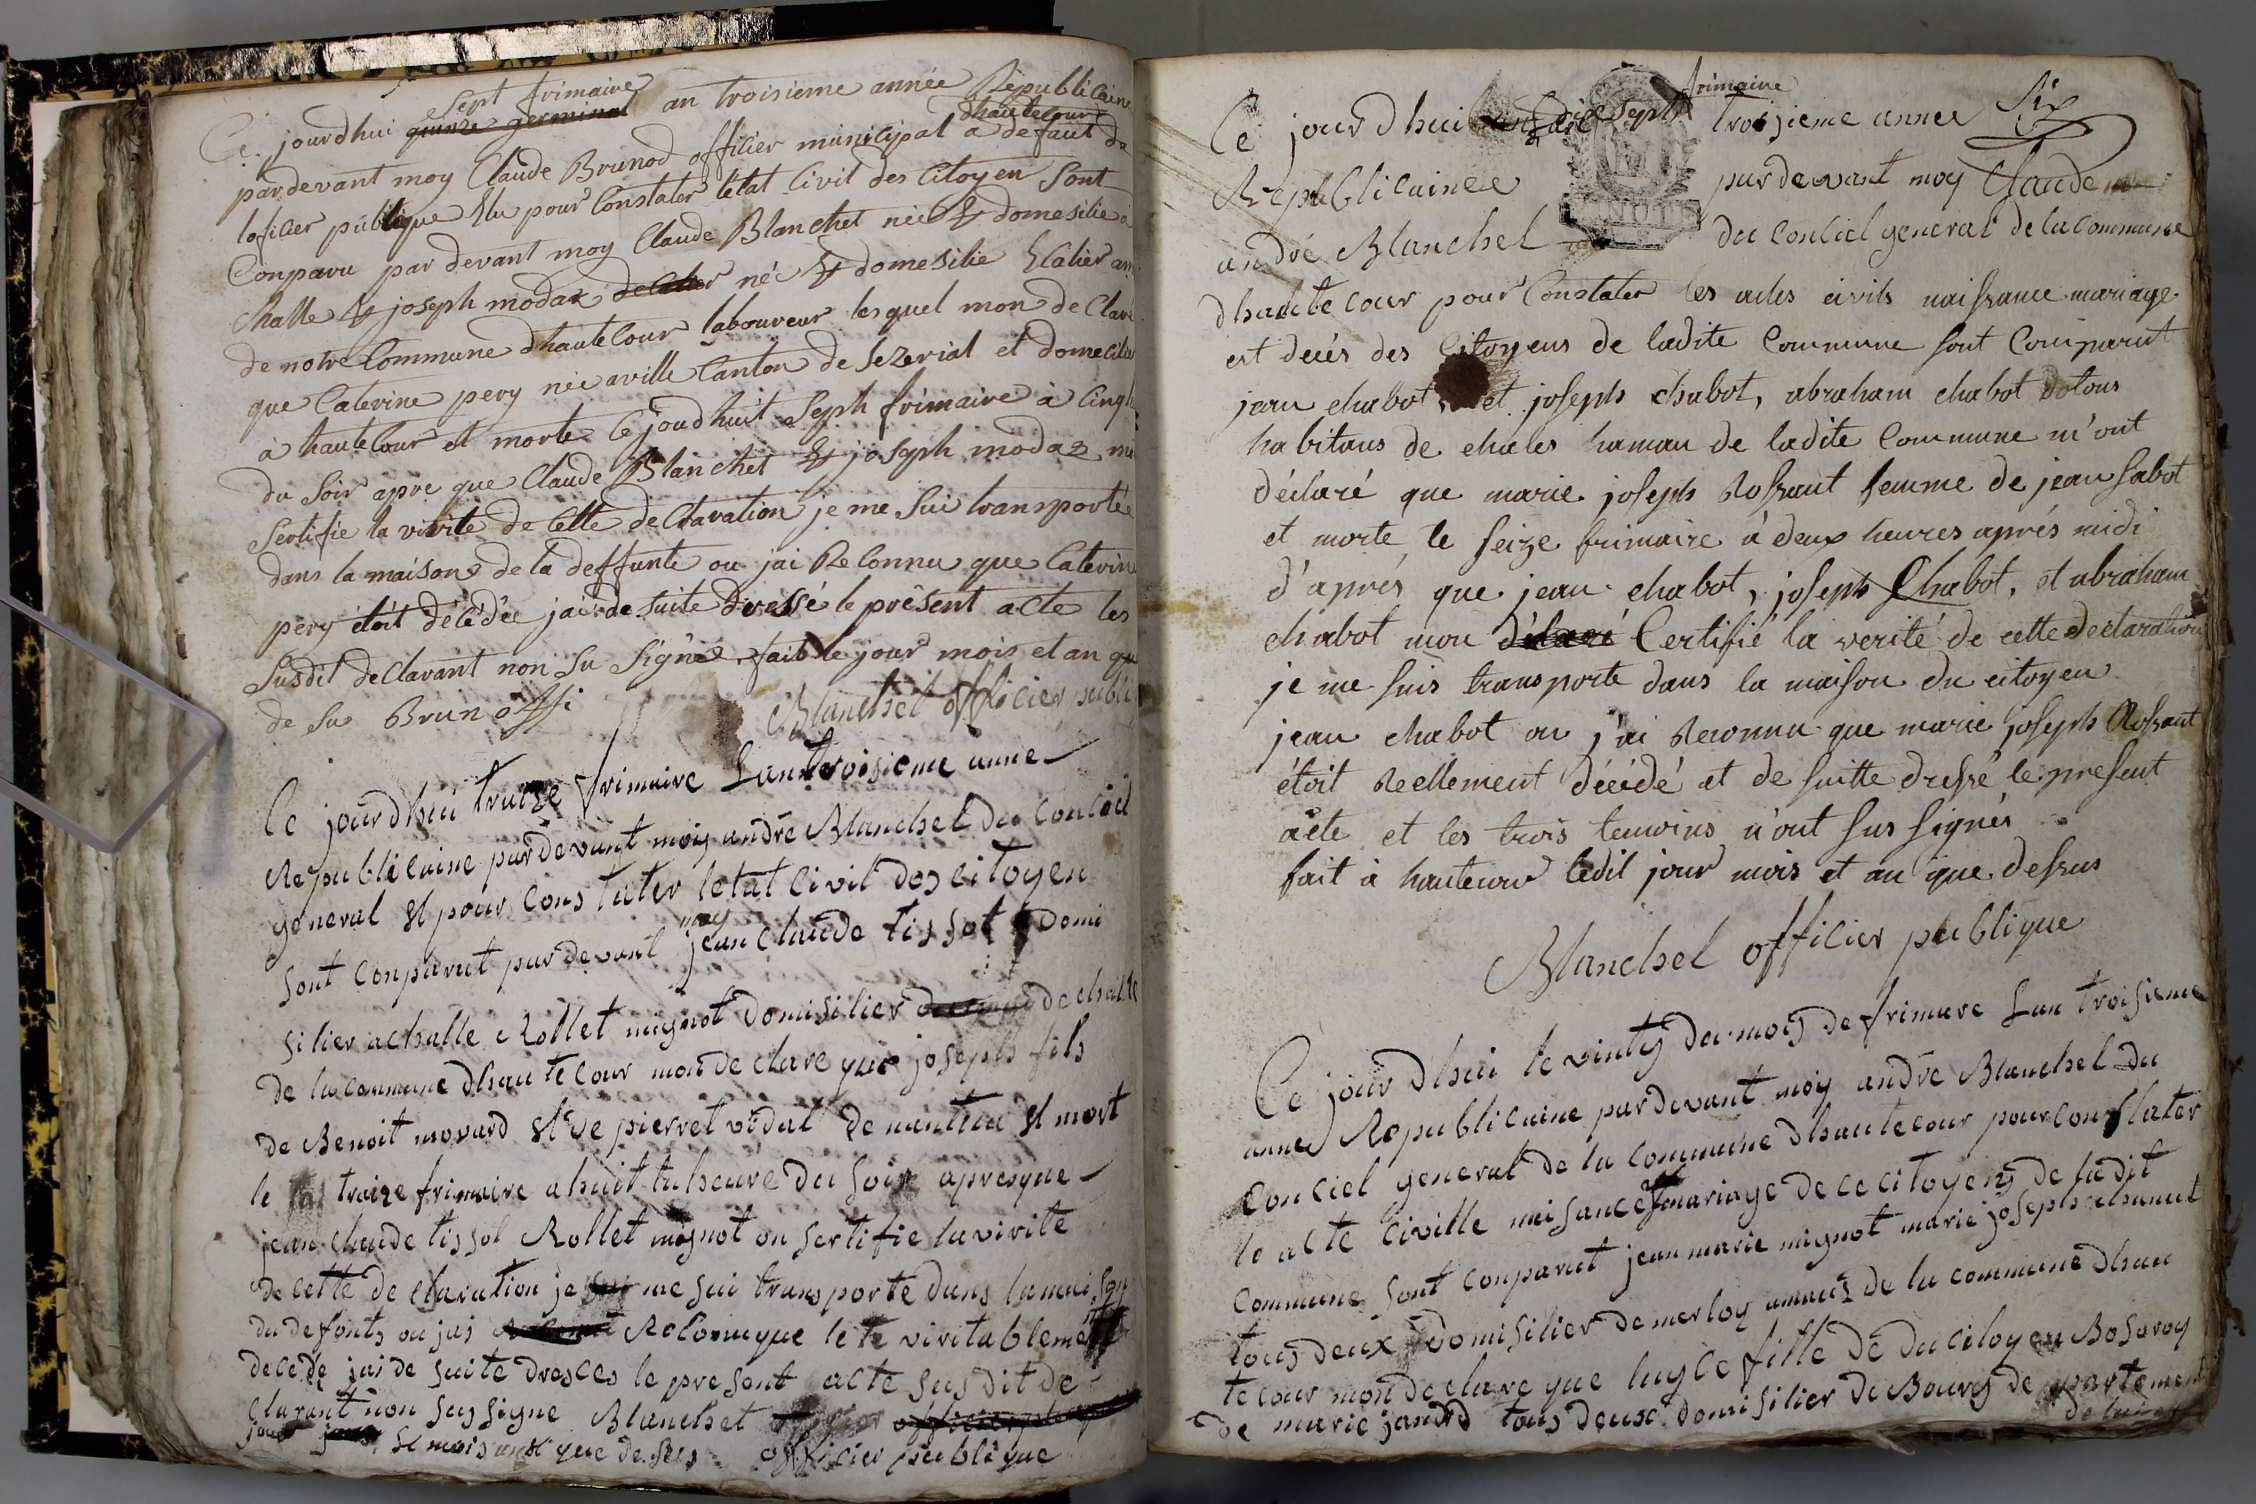 sept frimaire
Ce jourdhui quinze germinal an troisieme année Républicaine
dhautecour
pardevant moy Claude Brunod officier municipal a defaut de
lofficier publique Elu pour Constater letat Civil des Citoyen Sont
Conparu par devant moy Claude Blanchet née & domesilie a
Challe & joseph modaz né & domesilie
de notre Commune dhautecour laboureur lesquel mon de Clare
que Caterine pery née aville Canton de Sezeriat et domecilie
à hautecour et morte Ce joudhuit Seph frimaire à Cinq
du Soir apre que Claude Blanchet & joseph modaz
Sertifie la virite de Cette de Claration je me Sui transportée
dans la maison de la deffunte ou jai Reconnu que Caterine
pery étoit décédée jai de suite dressé le présent acte les
Susdit de Clarant non Su Signé fait le jour mois et an que
de Sus Brun offi
Blanchet officier public
Ce jourdhui traize frimaire Lan troisieme anne
Republicaine pardevant moy andré Blanchet du Conciel
general et pour Constater letat Civil des citoyen
moy
sont conparut pardevant jean Claude tissot domi
silier a challe Rollet mignot domisilier de challe
de la commune dhautecour mon de clare que joseph fils
de Benoit movard et de pierret vidal de nantua et mort
le traize frimaire a huit taheure du soir apresque
jean Claude tissot Rollet mignot on sertifie la virite
de cette de claration je me sui transporte dans la maison
du defonts ou jai Reconu que lete viritablement
decede jai de suite dresces le present acte susdit de
clarant non sus signe Blanchet
jour et mois an et que de sus officier publique
frimaire
Ce jour dhui sept troisieme annee
Républicainee pardevant moy Claude
andré Blanchet du Conciel general de la commune
dhautecour pour Constater les actes civils naissance mariage
et decés des Citoyens de ladite Commune sont Comparut
jean chabot, et joseph chabot, abraham chabot
habitans de chales hamau de ladite Commune m'ont
déclaré que marie joseph Rossant femme de jean sabot
et morte le seize frimaire à deux heures aprés midi
d'aprés que jean chabot, joseph Chabot, et abraham
chabot mon déclaré Certifié la verité de cette declaration
je me suis transporte dans la maison du citoyen
jean chabot ou j'ai Reconnu que marie joseph Rossant
étoit Reellement décédé et de suitte dressé le present
acte et les trois temoins n'ont sus signés
fait à hautecour ledit jour mois et an que dessus
Blanchet officier publique
Ce jour dhui le vinty du mois de frimare Lan troisieme
anne Republicaine pardevant moy andré Blanchet du
Conciel general de la Commune dhautecour pour constater
le acte Civille naisance mariage de ce citoyens de ladit
Commune sont conparut jean marie mignot marie joseph chanut
tous deux domisilier de merloy de la commune dhau
tecour mon de clare que luyce fille de du citoyen Bosaroy
de marie jandrd tous deux domisilier de Bourg de partement
de lain